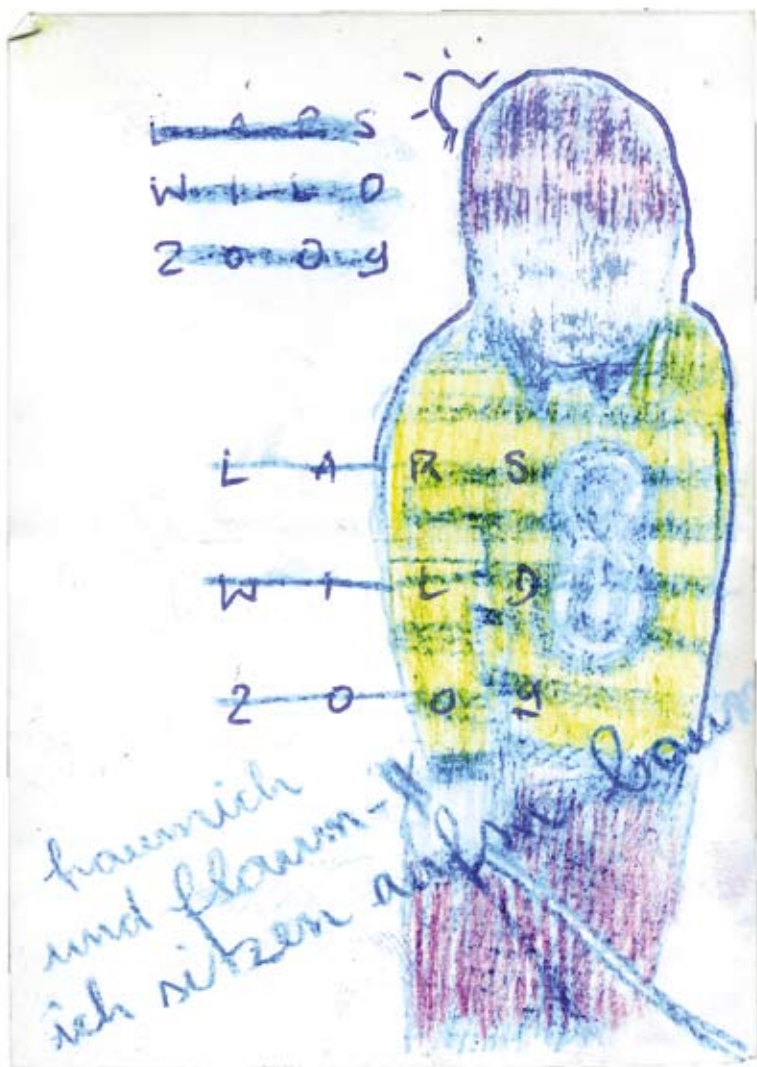 LARS
WILD
2009
LARS
WILD
2009
haumich
und flaum-
ich sitzen aufm baum